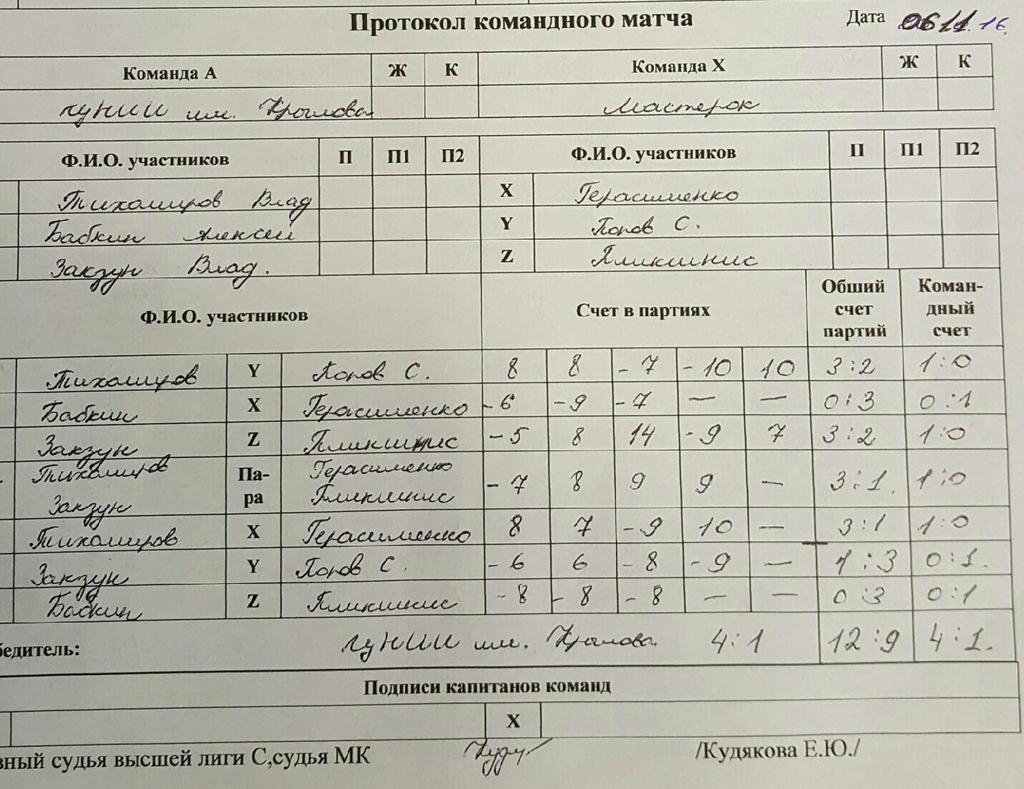 Протокол командного матча Дата 06 11. 16.
Команда А Ж К Команда X Ж К
им. Крылова Мастерок
Ф.И.О. участников П П1 П2 Ф.И.О. участников П П1 П2
Тихомиров Влад X Герасименко
Бабкин Алексей Y Попов С.
Закзун Влад. Z Пликшнис
Ф.И.О. участников Счет в партиях Обший счет партий Коман-дный счет
Тихомиров Y Попов С. 8 8 -7 -10 10 3:2 1:0
Бабкин X Герасименко -6 -9 -7 — — 0:3 0:1
Закзун Z Пликшнис -5 8 14 -9 7 3:2 1:0
Тихомиров Закзун Па-ра Герасименко Пликшнис -7 8 9 9 — 3:1. 1:0
Тихомиров X Герасименко 8 7 -9 10 — 3:1 1:0
Закзун Y Попов С. -6 6 -8 -9 — 1:3 0:1.
Бабкин Z Пликшнис -8 -8 -8 — — 0:3 0:1
бедитель: им. Крылова. 4:1 12:9 4:1.
Подписи капитанов команд
X
вный судья высшей лиги С,судья МК /Кудякова Е.Ю./